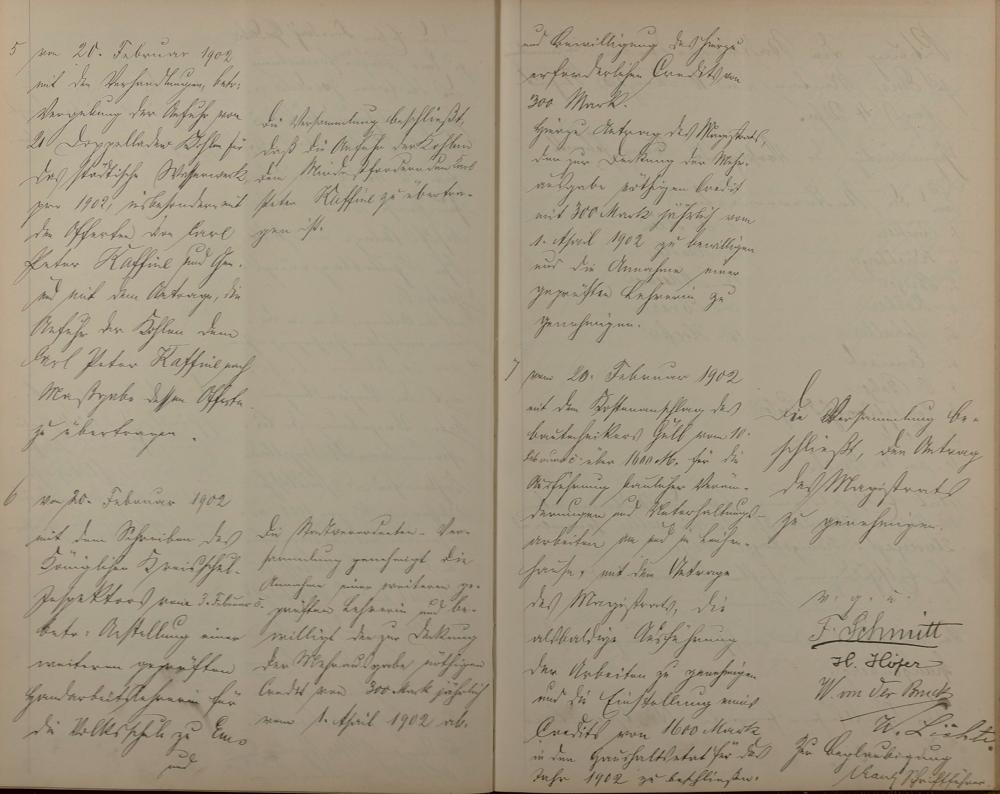 5 vom 20. Februar 1902
mit den Verhandlungen, betr:
Vergebung der Anfuhr von
21 Doppelladen Kohlen für
das städtische Wasserwerk
pro 1902, insbesondere mit
den Offerten von Carl
Peter Kaffine und Gen.
und mit dem Antrage, die
Anfuhr der Kohlen dem
Carl Peter Kaffine nach
Maßgabe dessen Offerte
zu übertragen.
Die Versammlung beschließt,
daß die Anfuhr der Kohlen
dem Mindestfordernden Carl
Peter Kaffine zu übertra-
gen ist.
6 vom 20. Februar 1902
mit dem Schreiben des
Königlichen Kreisschul-
Inspektors vom 3. Februar
betr: Anstellung einer
weiteren geprüften
Handarbeitslehrerin für
die Volksschule zu Ems
und
Die Stadtverordneten-Ver-
sammlung genehmigt die
Annahme einer weiteren ge-
prüften Lehrerin und be-
willigt den zur Deckung
der Mehrausgabe nöthigen
Credit von 300 Mark jährlich
vom 1. April 1902 ab.
und Bewilligung des hierzu
erforderlichen Credits von
300 Mark.
Hierzu Antrag des Magistrats,
den zur Deckung der Mehr-
ausgabe nöthigen Credit
mit 300 Mark jährlich vom
1. April 1902 zu bewilligen
und die Annahme einer
geprüften Lehrerin zu
genehmigen.
7 vom 20. Februar 1902
mit dem Kostenanschlag des
Bautechnikers Gull vom 10.
über 1600 M. für die
Ausführung baulicher Verän-
derungen und Unterhaltungs-
arbeiten an und in
hause, mit dem Antrage
des Magistrats, die
alsbaldige Ausführung
der Arbeiten zu genehmigen
und die Einstellung eines
Credits von 1600 Mark
in den Haushaltsetat für das
Jahr 1902 zu beschließen.
Die Versammlung be-
schließt, den Antrag
des Magistrats
zu genehmigen.
v. g. u.
F. Schmitt
H. Höfer
W. von der Bruck
Zur Beglaubigung
Schriftführer